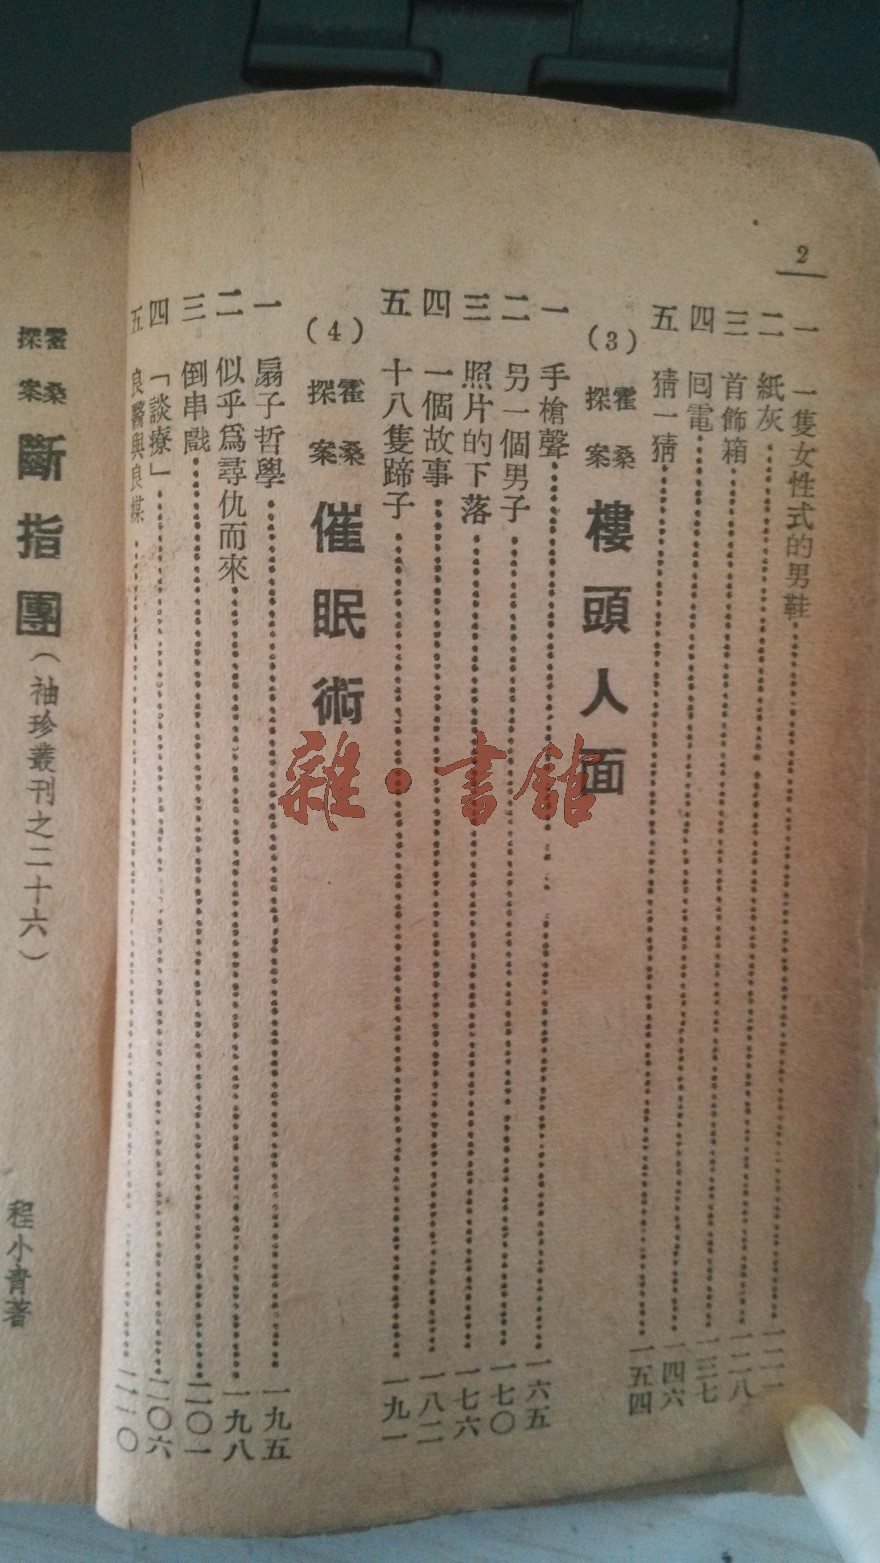 2
一 一隻女性式的男鞋……一二一
二 紙灰……一二八
三 首飾箱……一三七
四 囘電……一四六
五 猜一猜……一五四
(3) 霍桑探案 樓頭人面
一 手槍聲……一六五
二 另一個男子……一七〇
三 照片的下落……一七六
四 一個故事……一八二
五 十八隻蹄子……一九一
(4) 霍桑探案 催眠術
一 扇子哲學……一九五
二 似乎爲尋仇而來……一九八
三 倒串戲……二〇一
四 「談療」……二〇六
五 良醫與良媒……二一〇
霍桑探案 斷指團(袖珍叢刊之二十六) 程小青著
雜·書館